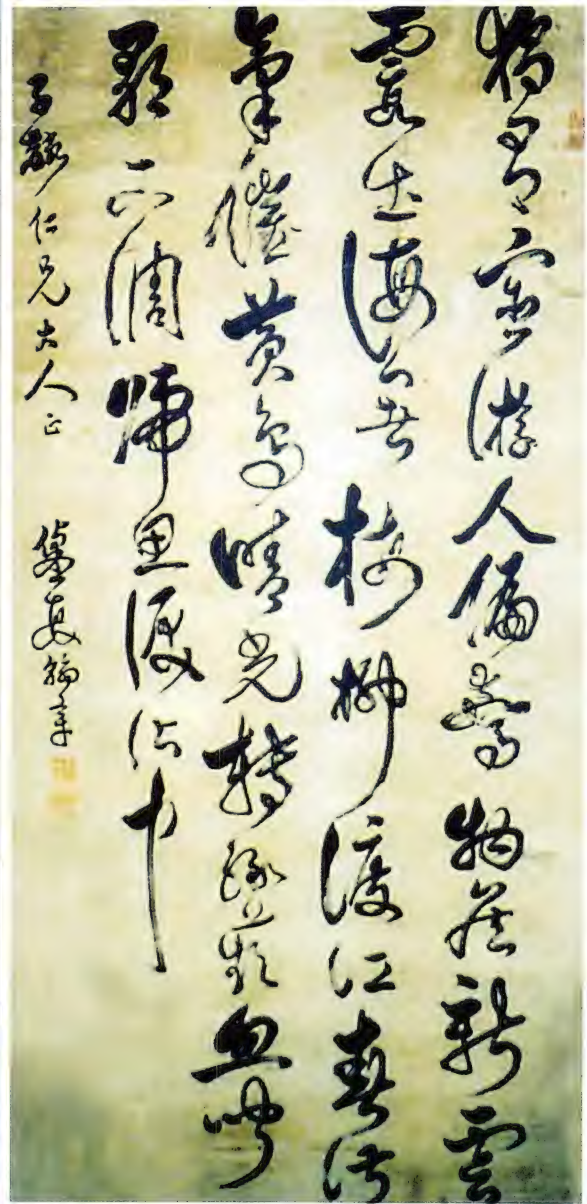 獨有宦游人偏驚物候新雲
霞出海曙梅柳渡江春淑
氣催黃鳥晴光轉綠蘋忽聞
歌古調歸思復沾巾
子齡仁兄大人正